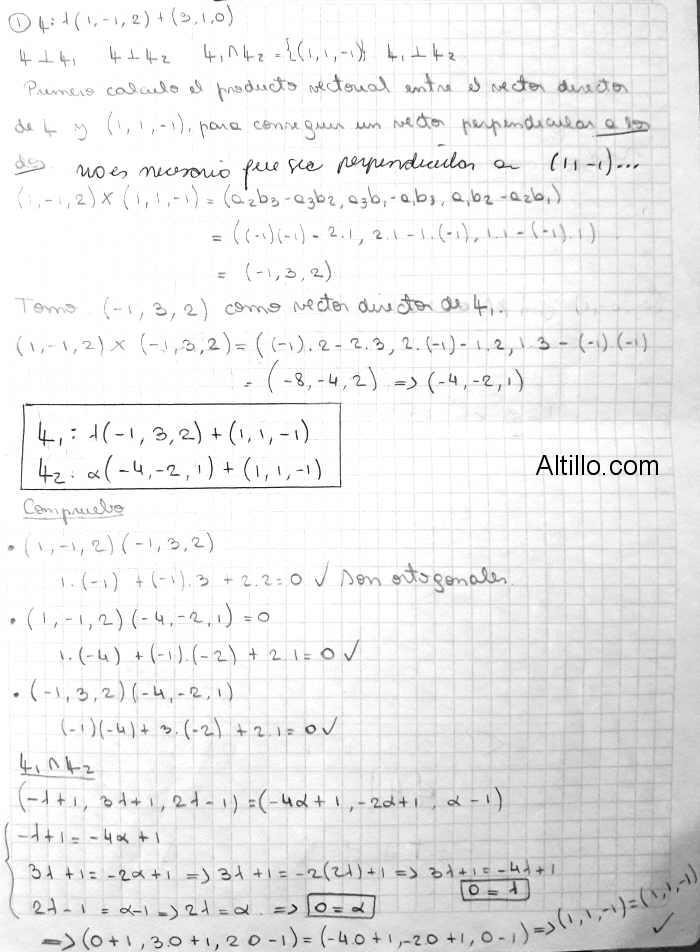 ① L: λ(1,-1,2)+(3,1,0)
L ⊥ L₁ L ⊥ L₂ L₁ ∩ L₂ = {(1,1,-1)} L₁ ⊥ L₂
Primero calculo el producto vectorial entre el vector director
de L y (1,1,-1), para conseguir un vector perpendicular a los
dos. no es necesario que sea perpendicular a (1 1 -1)...
(1,-1,2) × (1,1,-1) = (a₂b₃-a₃b₂, a₃b₁-a₁b₃, a₁b₂-a₂b₁)
= ((-1)(-1) - 2.1, 2.1 - 1.(-1), 1.1 - (-1).1)
= (-1,3,2)
Tomo (-1,3,2) como vector director de L₁.
(1,-1,2) × (-1,3,2) = ((-1).2 - 2.3, 2.(-1) - 1.2, 1.3 - (-1)(-1)
= (-8,-4,2) => (-4,-2,1)
L₁: λ(-1,3,2)+(1,1,-1)
L₂: α(-4,-2,1)+(1,1,-1)
Altillo.com
Compruebo
• (1,-1,2)(-1,3,2)
1.(-1) + (-1).3 + 2.2 = 0 ✓ Son ortogonales.
• (1,-1,2)(-4,-2,1) = 0
1.(-4) + (-1).(-2) + 2.1 = 0 ✓
• (-1,3,2)(-4,-2,1)
(-1)(-4) + 3.(-2) + 2.1 = 0 ✓
L₁ ∩ L₂
(-λ+1, 3λ+1, 2λ-1) = (-4α+1, -2α+1, α-1)
-λ+1 = -4α+1
3λ+1 = -2α+1 => 3λ+1 = -2(2λ)+1 => 3λ+1 = -4λ+1
0 = λ
2λ-1 = α-1 => 2λ = α => 0 = α
=> (0+1, 3.0+1, 2.0-1) = (-4.0+1, -2.0+1, 0-1) => (1,1,-1) = (1,1,-1) ✓